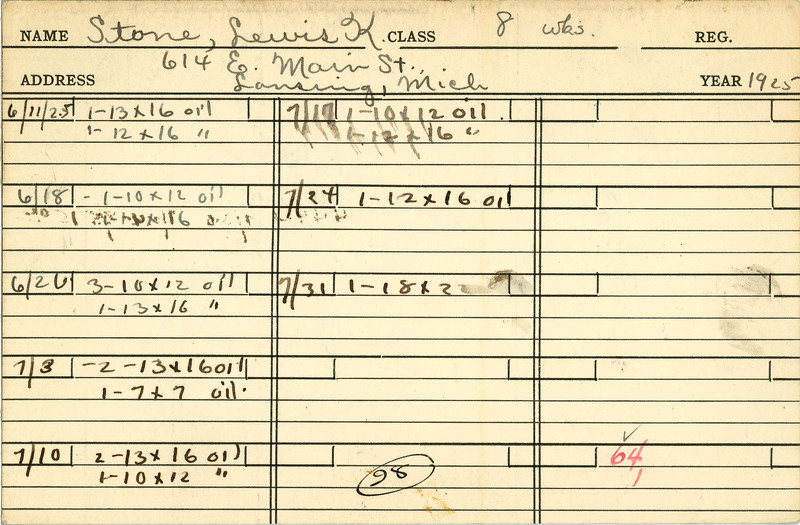 NAME Stone, Lewis K. CLASS 8 wks. REG.
614 E. Main St.
ADDRESS Lansing, Mich YEAR 1925
6/11/25 1-13x16 oil
1-12x16 "
6/18 - 1-10x12 oil
6/26 3-10x12 oil
1-13x16 "
7/3 -2-13x16 oil
1-7x7 oil.
7/10 2-13x16 oil
1-10x12 "
7/17 1-10x12 oil.
1-12x16 "
7/24 1-12x16 oil
7/31 1-18x22
98
64